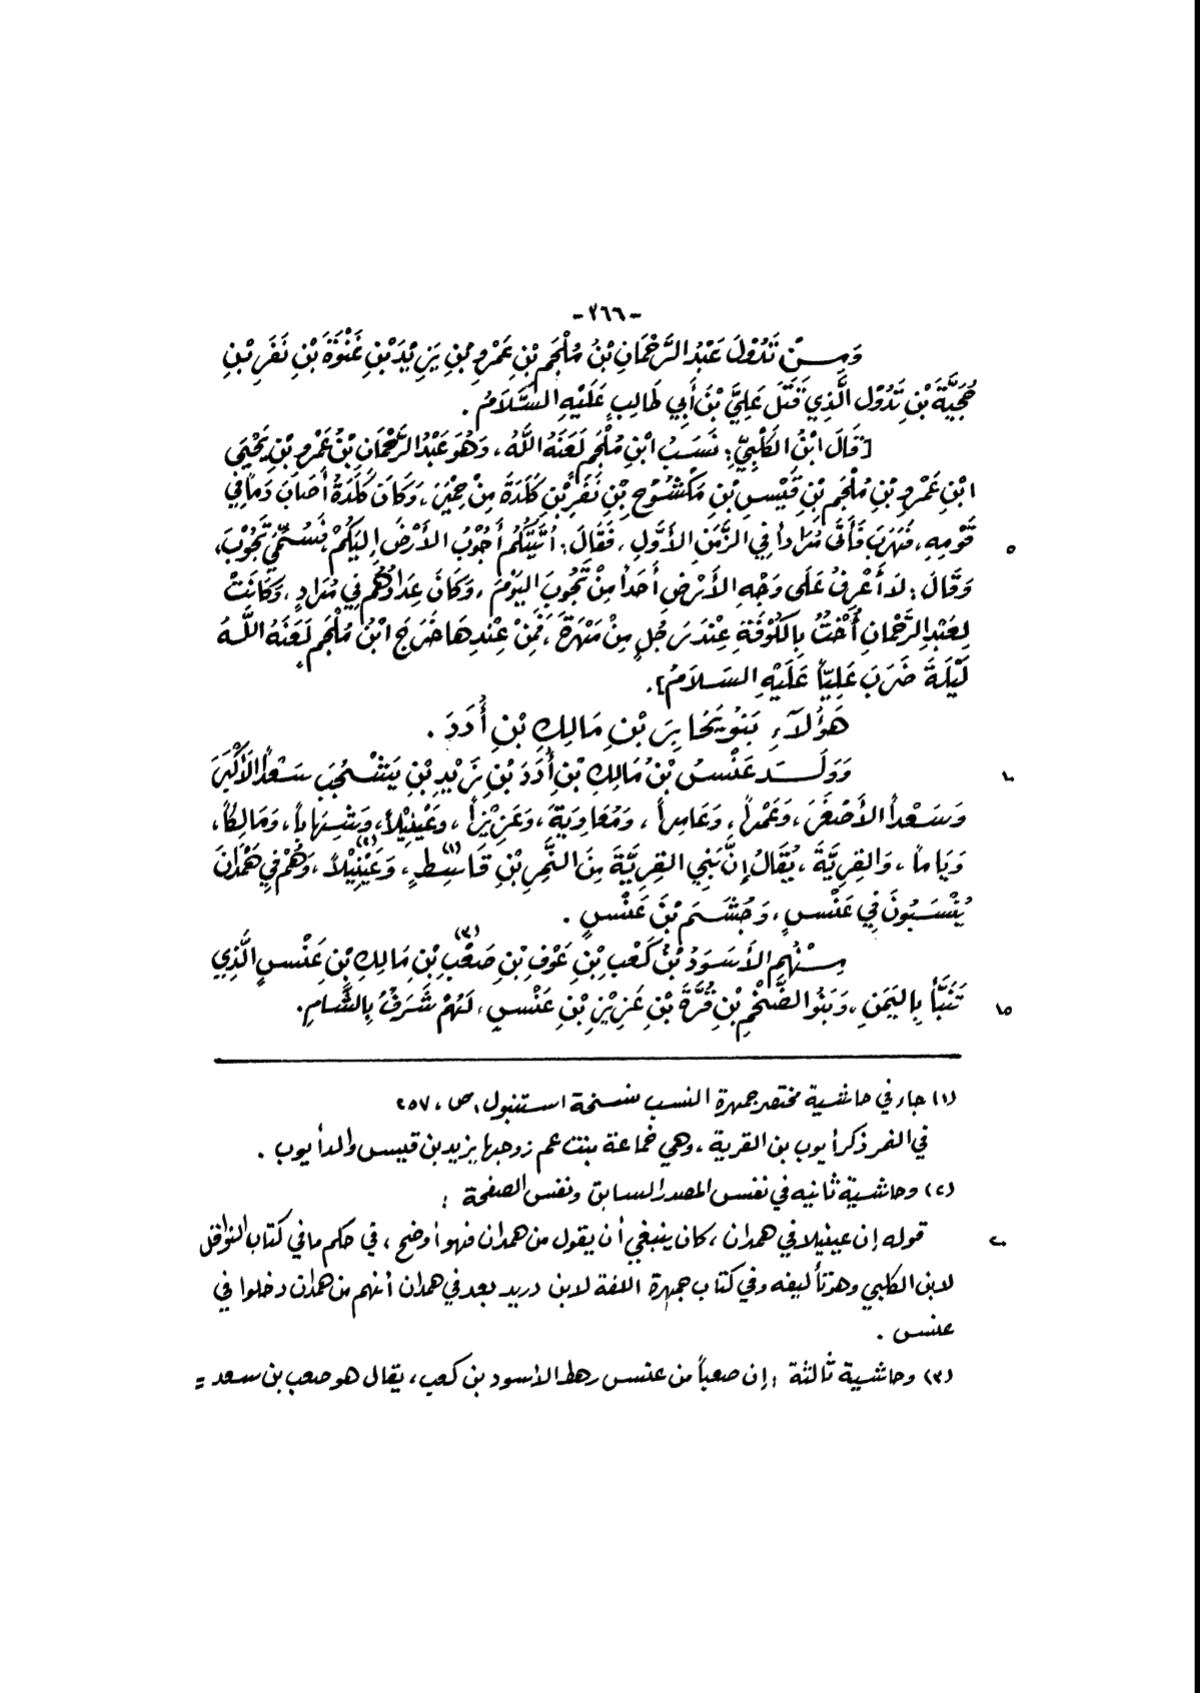 -٣٦٦-
وَمِنْ تَدُوْلَ عَبْدُ الرَّحْمَانِ بْنُ مُلْجَمِ بْنِ عَمْرِو بْنِ يَزِيْدَ بْنِ غَنْوَةَ بْنِ نَفَرِ بْنِ
حُجَيَّةَ بْنِ تَدُوْلَ الَّذِي قَتَلَ عَلِيَّ بْنَ أَبِي طَالِبٍ عَلَيْهِ السَّلَامُ .
[قَالَ ابْنُ الكَلْبِيِّ: نَسَبُ ابْنِ مُلْجَمٍ لَعَنَهُ اللَّهُ، وَهُوَ عَبْدُ الرَّحْمَانِ بْنُ عَمْرِو بْنِ يَحْيَى
ابْنِ عَمْرِو بْنِ مُلْجَمِ بْنِ قَيْسِ بْنِ مَكْشُوْحِ بْنِ نَفَرِ بْنِ كَلَدَةَ مِنْ حِمْيَرَ، وَكَانَ كَلَدَةُ أَصَابَ دَمَاً فِي
قَوْمِهِ، فَهَرَبَ فَأَتَى مُرَاداً فِي الزَّمَنِ الأَوَّلِ، فَقَالَ: أَتَيْتُكُم أَجُوْبُ الأَرْضَ إِلَيْكُمْ فَسُمِّيَ تَجُوْبَ، ٥
وَقَالَ: لَا أَعْرِفُ عَلَى وَجْهِ الأَرْضِ أَحَداً مِنْ تَجُوبَ اليَوْمَ، وَكَانَ عِدَادُهُم فِي مُرَادٍ، وَكَانَتْ
لِعَبْدِ الرَّحْمَانِ أُخْتٌ بِالكُوْفَةِ عِنْدَ رَجُلٍ مِنْ مَهْرَةَ، فَمِنْ عِنْدِهَا خَرَجَ ابْنُ مُلْجَمٍ لَعَنَهُ اللَّهُ
لَيْلَةَ ضَرَبَ عَلِيّاً عَلَيْهِ السَّلَامُ].
هَؤُلَآءِ بَنُو يُحَابِرَ بْنِ مَالِكِ بْنِ أُدَدَ .
وَوَلَدَ عَنْسُ بْنُ مَالِكِ بْنِ أُدَدَ بْنِ زَيْدِ بْنِ يَشْجُبَ سَعْدَاً الأَكْبَرَ ١٠
وَسَعْداً الأَصْغَرَ، وَعَمْراً، وَعَامِراً، وَمُعَاوِيَةَ، وَعَزِيْزاً، وَعَيْنِيْلاً، وَشِهَاباً، وَمَالِكاً،
وَيَاماً، وَالقِرِيَّةَ، يُقَالُ إِنَّ بَنِي القِرِيَّةَ مِنَ النَّمِرِ بْنِ قَاسِطٍ(١)، وَعَيْنِيْلاً(٢)، وَهُمْ فِي هَمْدَانَ
يُنْسَبُونَ فِي عَنْسٍ، وَجُشَمَ بْنَ عَنْسٍ .
مِنْهُم الأَسْوَدُ بْنُ كَعْبِ بْنِ عَوْفِ بْنِ صَعْبِ(٣) بْنِ مَالِكِ بْنِ عَنْسٍ الَّذِي
تَنَبَّأَ بِاليَمَنِ، وَبَنُو الضَّخْمِ بْنِ قُرَّةَ بْنِ عَزِيْزِ بْنِ عَنْسٍ، لَهُمْ شَرَفٌ بِالشَّامِ. ١٥
(١) جاء في حاشية مختصر جمهرة النسب نسخة استنبول، ص، ٢٥٧
في النمر ذكر أيوب بن القرية، وهي خماعة بنت عم زوجها يزيد بن قيس والد أيوب .
(٢) وحاشية ثانيه في نفس المصدر السابق ونفس الصفحة :
قوله إن عينيلا في همدان، كان ينبغي أن يقول من همدان فهو أوضح، في حكم ما في كتاب النوافل ٢٠
لابن الكلبي وهو تأليفه وفي كتاب جمهرة اللغة لابن دريد بعد في همدان أنهم من همدان دخلوا في
عنس .
(٣) وحاشية ثالثة : إن صعباً من عنس رهط الأسود بن كعب، يقال هو صعب بن سعد =